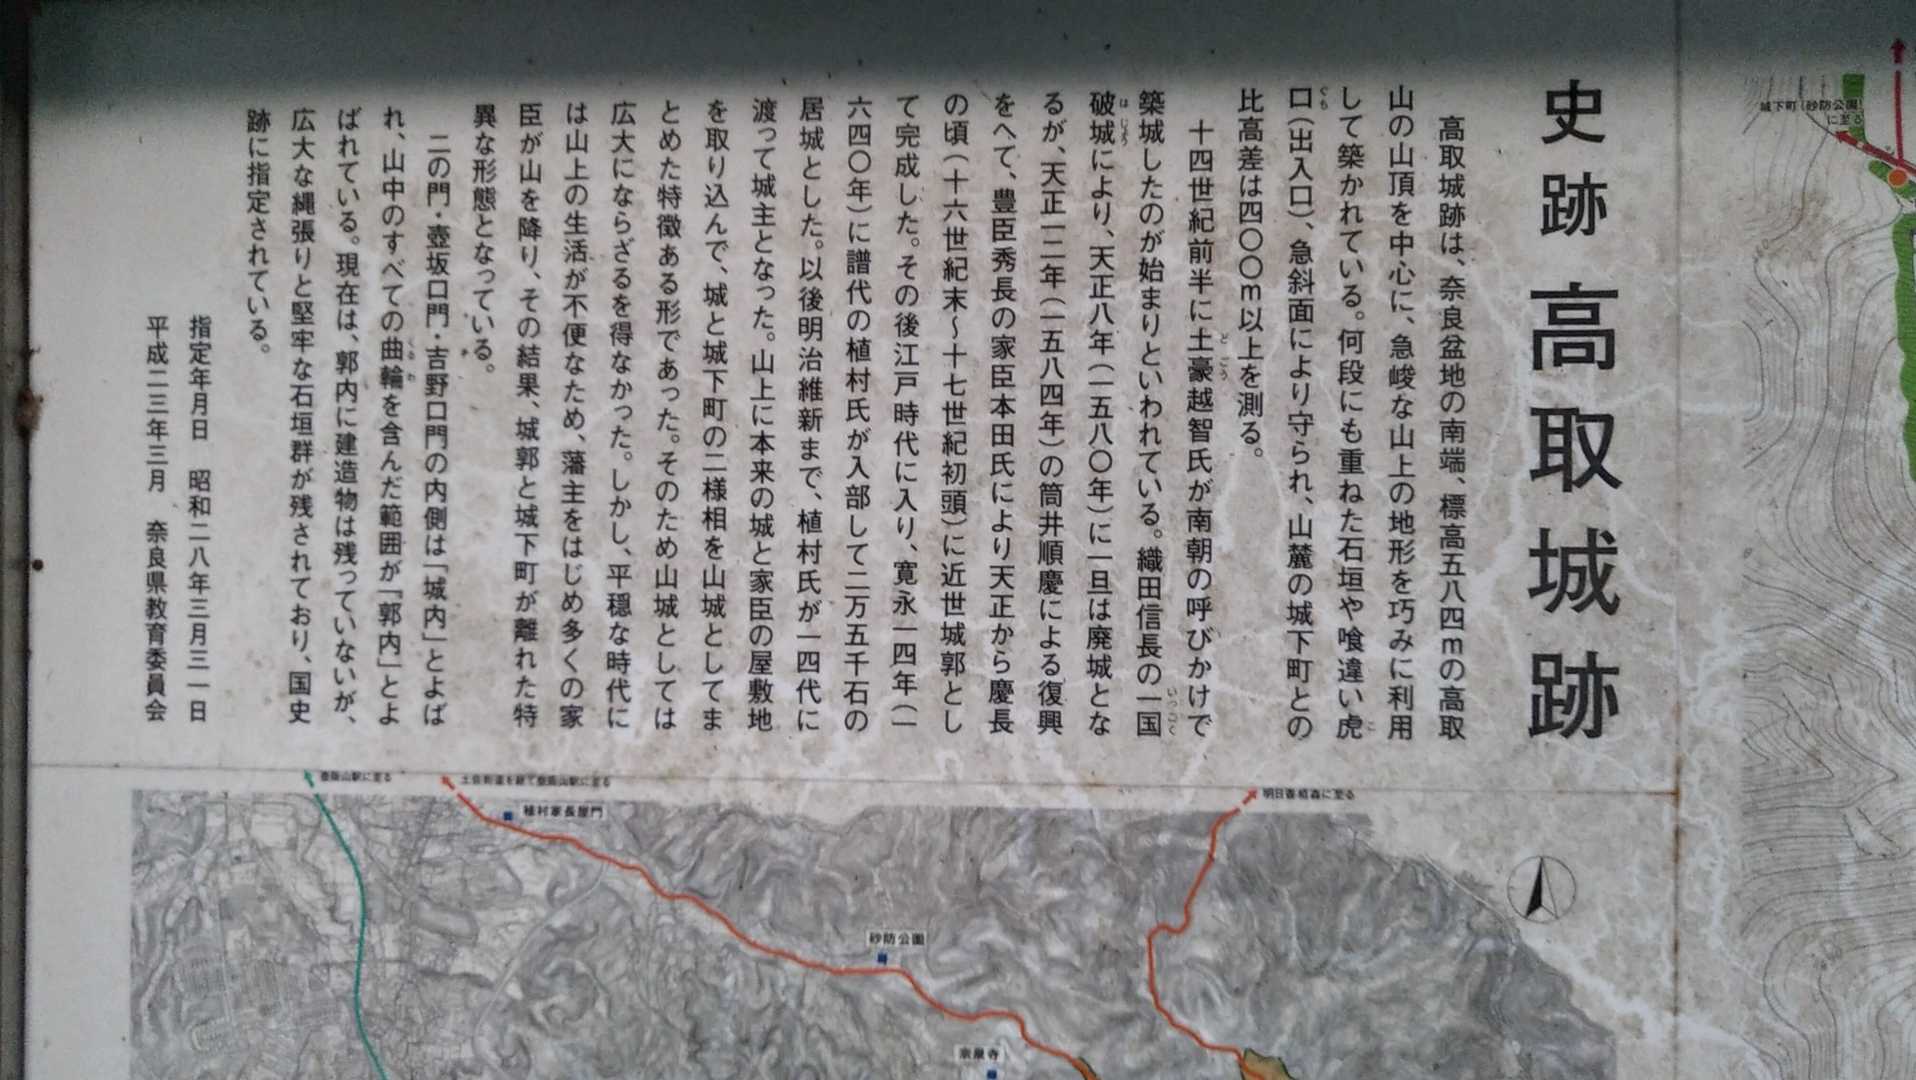 史跡 高取城跡
高取城跡は、奈良盆地の南端、標高五八四mの高取
山の山頂を中心に、急峻な山上の地形を巧みに利用
して築かれている。何段にも重ねた石垣や喰違い虎
口(出入口)、急斜面により守られ、山麓の城下町との
比高差は四〇〇m以上を測る。
十四世紀前半に土豪越智氏が南朝の呼びかけで
築城したのが始まりといわれている。織田信長の一国
破城により、天正八年(一五八〇年)に一旦は廃城とな
るが、天正一二年(一五八四年)の筒井順慶による復興
をへて、豊臣秀長の家臣本田氏により天正から慶長
の頃(十六世紀末〜十七世紀初頭)に近世城郭とし
て完成した。その後江戸時代に入り、寛永一四年(一
六四〇年)に譜代の植村氏が入部して二万五千石の
居城とした。以後明治維新まで、植村氏が一四代に
渡って城主となった。山上に本来の城と家臣の屋敷地
を取り込んで、城と城下町の二様相を山城としてま
とめた特徴ある形であった。そのため山城としては
広大にならざるを得なかった。しかし、平穏な時代に
は山上の生活が不便なため、藩主をはじめ多くの家
臣が山を降り、その結果、城郭と城下町が離れた特
異な形態となっている。
二の門・壺坂口門・吉野口門の内側は「城内」とよば
れ、山中のすべての曲輪を含んだ範囲が「郭内」とよ
ばれている。現在は、郭内に建造物は残っていないが、
広大な縄張りと堅牢な石垣群が残されており、国史
跡に指定されている。
指定年月日 昭和二八年三月三一日
平成二三年三月 奈良県教育委員会
城下町(砂防公園)
に至る
壺阪山駅に至る
土佐街道を経て壺阪山駅に至る
明日香栢森に至る
植村家長屋門
砂防公園
宗泉寺